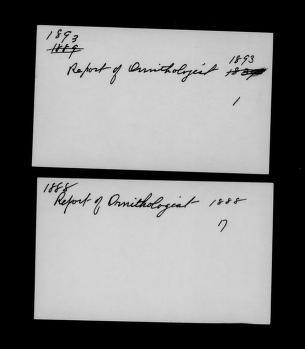 1893
1889
1893
Report of Ornithologist 1889
1
1888
Report of Ornithologist 1888
7